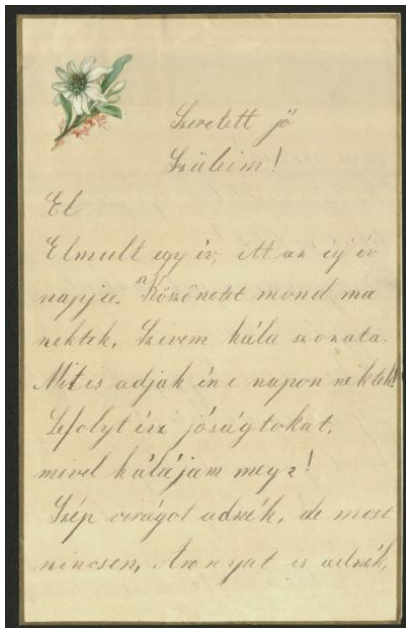 Szeretett jó
Szüleim!
El
Elmult egy év, itt az új év
napja. Köszönetet mond ma
nektek, Szivem hála szozata.
Mit is adjak én e napon néktek!
Lefolyt évi jóságtokat,
mivel hálájam meg?!
Szép virágot adnék, de most
nincsen, Aranyat is adnék,